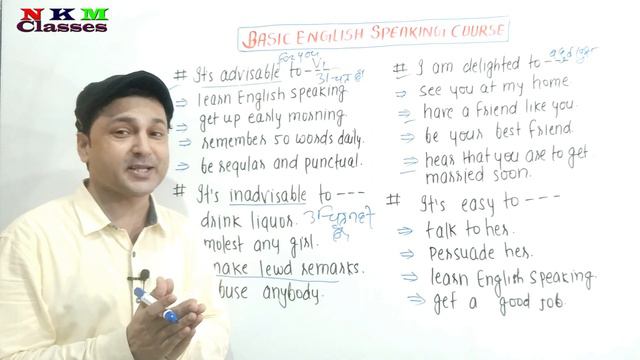 NKM
Classes
BASIC ENGLISH SPEAKING COURSE
for you
# Its advisable to - V1
उचित है
⇒ learn English speaking
⇒ get up early morning
⇒ remember 50 words daily.
⇒ be regular and punctual.
# It's inadvisable to ---
drink liquor. उचित नहीं है
molest any girl.
make lewd remarks.
buse anybody.
# I am delighted to ---
⇒ see you at my home
⇒ have a friend like you.
⇒ be your best friend.
⇒ hear that you are to get
married soon.
# It's easy to ---
⇒ talk to her.
⇒ persuade her.
⇒ learn English speaking.
⇒ get a good job.